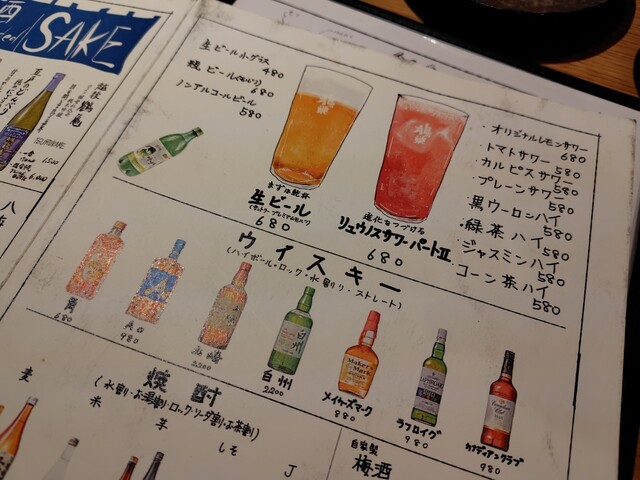 SAKE
生ビール小グラス
480
瓶ビール(もルツ)
680
ノンアルコールビール
580
まずは乾杯
生ビール
(サントリープレミアムモルツ)
680
進化をつづける
リュウノスサワーパートII
680
オリジナルレモンサワー
680
トマトサワー
580
カルピスサワー
580
プレーンサワー
580
・黒ウーロンハイ
580
・緑茶ハイ
580
ジャスミンハイ
580
コーン茶ハイ
580
ウイスキー
(ハイボール・ロック・水割り・ストレート)
680
AO
980
白州
2200
白州
Maker's Mark
メイカーズマーク
880
LAPHROAIG
ラフロイグ
980
カナディアンクラブ
980
焼酎
(水割・お湯割・ロック・ソーダ割・お茶割)
麦
米
芋
しそ
自家製
梅酒